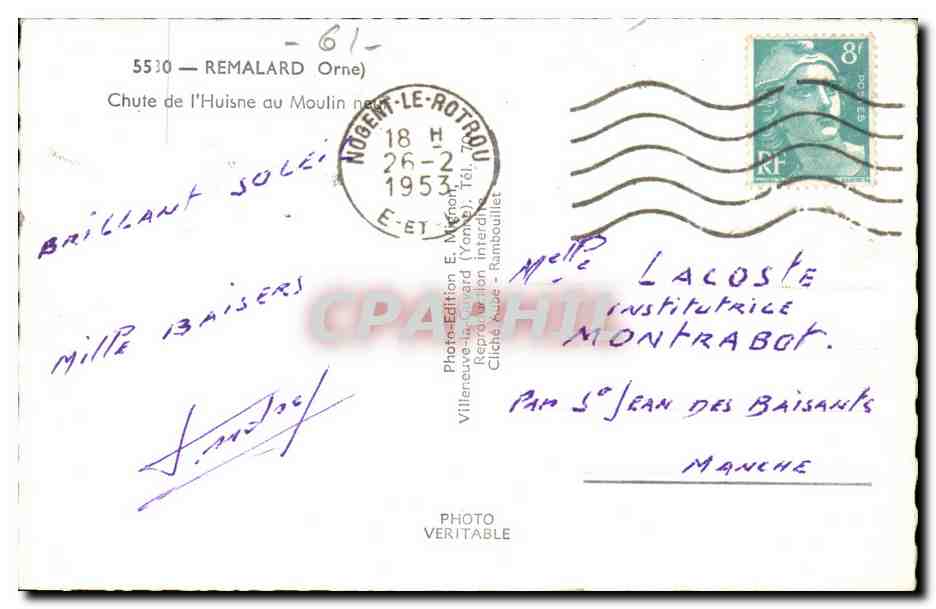 - 61 -
5530 — REMALARD Orne)
Chute de l'Huisne au Moulin neuf
NOGENT-LE-ROTROU
18 H
26-2
1953
E-ET-L
8f
POSTES
RF
BRILLANT SOLEIL
Mille BAISERS
Photo-Edition E. Mignon,
Villeneuve-la-Guyard (Yonne). Tél. 70
Reproduction interdite
Cliché Aube - Rambouillet
CPAPHIL
Melle LACOSTE
INSTITUTRICE
MONTRABOT.
PAR St JEAN DES BAISANTS
MANCHE
PHOTO
VERITABLE